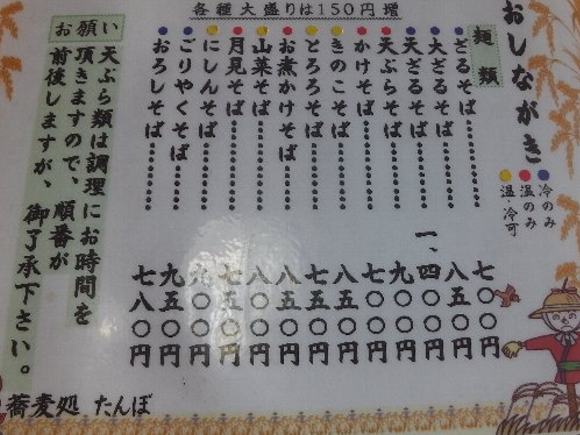 各種大盛りは150円増
おしながき
冷のみ
温のみ
温・冷可
麺類
ざるそば………七〇〇円
大ざるそば………八五〇円
天ざるそば………一、四〇〇円
天ぷらそば………九〇〇円
かけそば………七〇〇円
きのこそば………八五〇円
とろろそば………七五〇円
お煮かけそば………八五〇円
山菜そば………八〇〇円
月見そば………七五〇円
にしんそば………九〇〇円
ごりやくそば………九五〇円
おろしそば………七八〇円
お願い
天ぷら類は調理にお時間を
頂きますので、順番が
前後しますが、御了承下さい。
蕎麦処 たんぼ